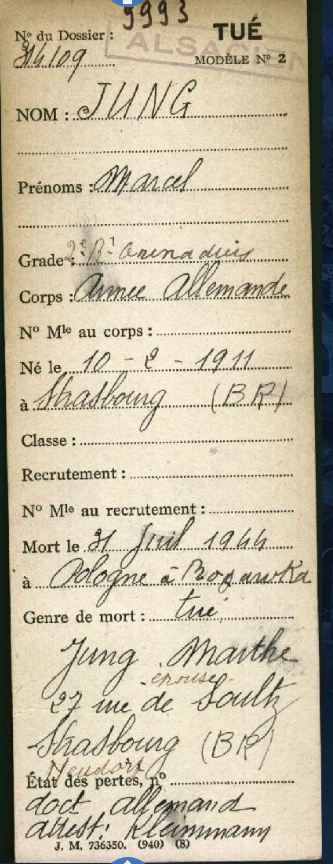 9993
N° du Dossier :
TUÉ
ALSACIEN
314109
MODÈLE N° 2
NOM : JUNG
Prénoms : Marcel
Grade :
Corps : Armée Allemande
N° Mle au corps :
Né le 10 - 2 - 1911
à Strasbourg (BR)
Classe :
Recrutement :
N° Mle au recrutement :
Mort le 31 Juil 1944
à Pologne à
Genre de mort : tué
Jung Marthe
épouse
27 rue de Soultz
Strasbourg (BR)
Neudorf
État des pertes, n°
doct allemand
attest: Kleinmann
J. M. 736350. (940) (8)